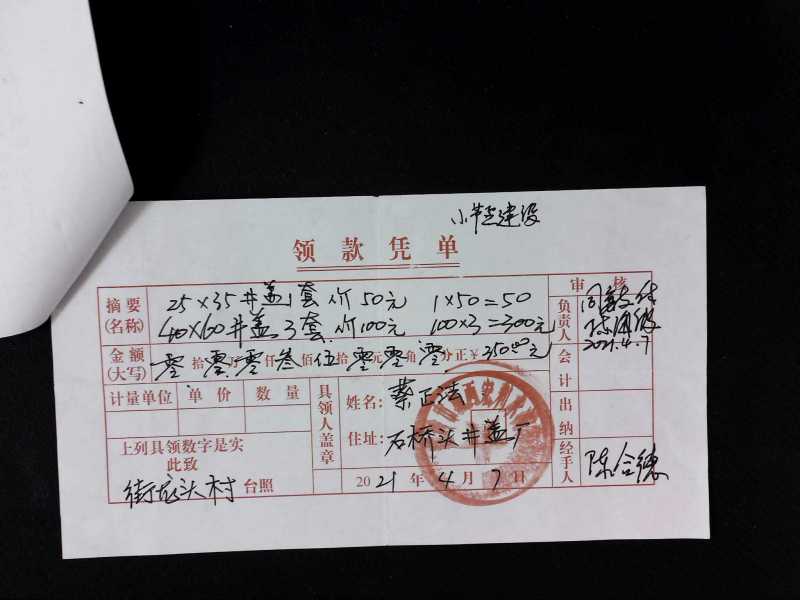 领款凭单
摘要(名称)
25×35井盖1套 价50元 1×50=50
40×60井盖3套 价100元 100×3=300元
金额(大写) 零 拾 零 万 零 仟 叁 佰 伍 拾 零 元 零 角 零 分正 ¥ 350.00元
计量单位 单价 数量
上列具领数字是实
此致
街龙头村 台照
具领人盖章
姓名: 蔡正法
住址: 石桥头井盖厂
2021年4月7日
审核
负责人
2021.4.7
会计
出纳
经手人